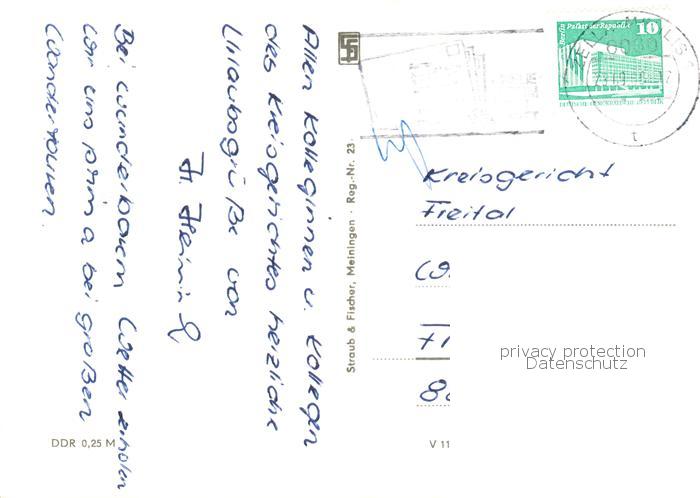 Allen Kolleginnen u. Kollegen
des Kreisgerichtes herzliche
Urlaubsgrüße von
Bei wunderbarem Wetter erholen
wir uns prima bei großen
Wandertouren.
DDR 0,25 M
Straub & Fischer, Meiningen · Reg.-Nr. 23
V 11
Berlin Palast der Republik
10
DEUTSCHE DEMOKRATISCHE REPUBLIK
Kreisgericht
Freital
privacy protection
Datenschutz